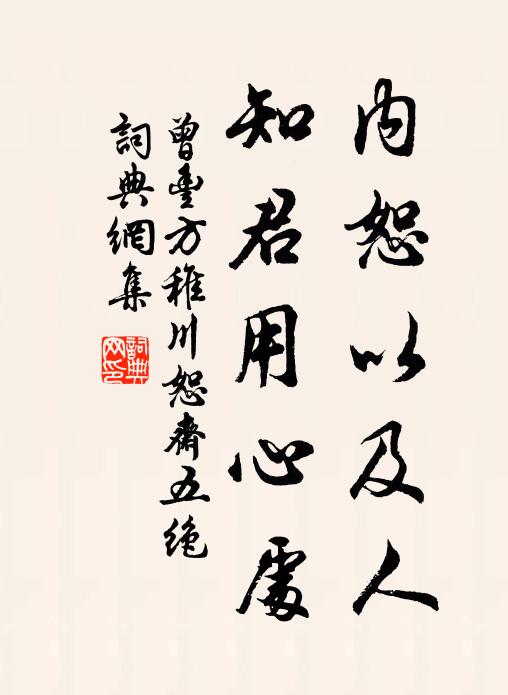 内恕以及人
知君用心處
曾豐方稚川恕齋五絶
詞典網集
詞典網印